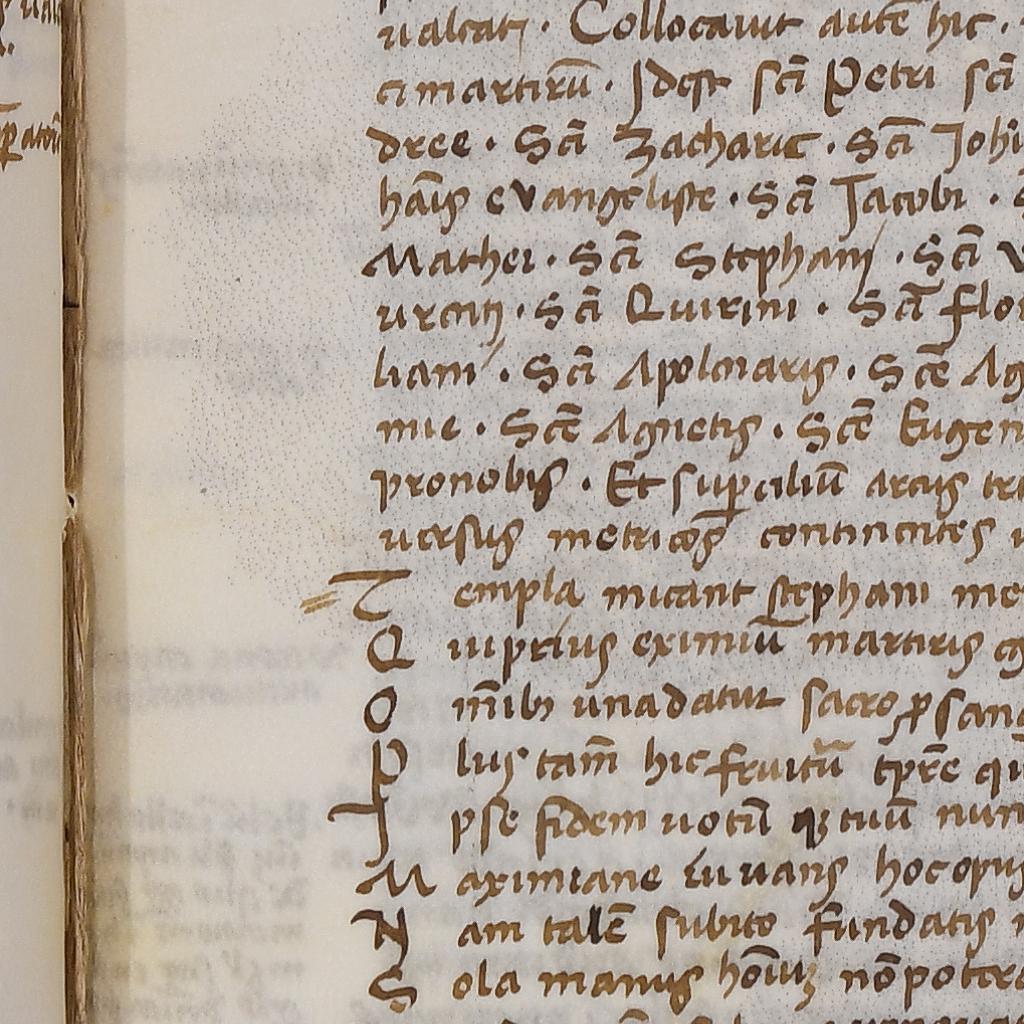 ualeat. Collocauit autē hic.
ci martirū. Idest sc̄i Petri sc̄i
dree. Sc̄i Zacharie. Sc̄i Iohi
hāis evangeliste. Sc̄i Iacobi.
Mathei. Sc̄i Stephani. Sc̄i V
urcitij. Sc̄i Quirini. Sc̄i flo
liani. Sc̄i Apolenaris. Sc̄e Ag
mie. Sc̄e Agnetis. Sc̄e Eugen
pronobis. Et supciliū arcus tr
uersus metricos continentes
Templa micant stephani me
Qui prius eximiū martiris
Om̄ib; una datur sacro ꝓ sang
Plus tam̄ hic fruitū tp̄re qu
Ipse fidem uotū qꝫ tuū num
Maximiane iuuans hoc opus
Nam talē subito fundatis
Sola manus hōiuꝫ nō potera